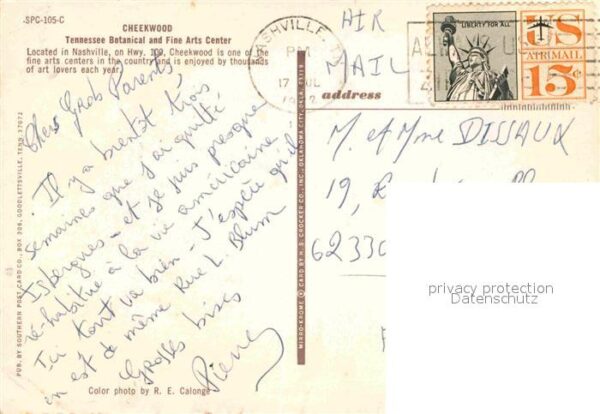 -SPC-105-C
CHEEKWOOD
Tennessee Botanical and Fine Arts Center
Located in Nashville, on Hwy. 100, Cheekwood is one of the
fine arts centers in the country and is enjoyed by thousands
of art lovers each year.
Chers Grds Parents,
Il y a bientôt trois
semaines que j'ai quitté
Isbergues - et je suis presque
ré-habitué à la vie américaine
Ici tout va bien - J'espère qu'il
en est de même Rue L. Blum
Grosses bises
Pierre
Color photo by R. E. Calonge
PUB. BY SOUTHERN POST CARD CO., BOX 306, GOODLETTSVILLE, TENN. 37072
MIRRO-KROME ® CARD BY H. S. CROCKER CO., INC.
NASHVILLE, T
PM
17 JUL
AIR
MAIL
address
LIBERTY FOR ALL
US
AIRMAIL
15¢
M. et Mme DISSAUX
19,
62330
privacy protection
Datenschutz